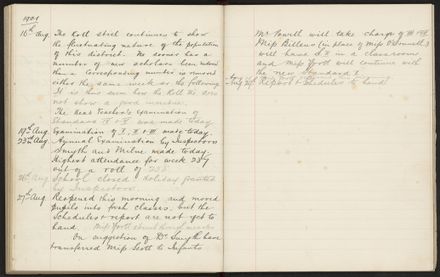 1901
16th Aug. The Roll still continues to show
the fluctuating nature of the population
of this district. No sooner has a
number of new scholars been
than a corresponding number is
either the same week or the following
It is thus seen how the Roll No. does
not show a good increase.
The Head Teacher's Examination of
Standards IV & V was made today
19th Aug. Examination of I, II & III made today.
23rd Aug. Annual Examination by Inspectors
Smyth and Milne made today.
Highest attendance for week 227
out of a roll of 238.
26th Aug. School closed. Holiday granted
by Inspectors.
27th Aug. Reopened this morning and moved
pupils into fresh classes, but the
schedules & report are not yet to
hand. Miss Scott absent through
On suggestion of Dr Smyth have
transferred Miss Scott to Infants
Mr Powell will take charge of III & IV
Miss (in place of Miss O'Connell)
will have S. II in a classroom
and Miss will continue with
the new Standard I.
Aug. Report & Schedules to hand.